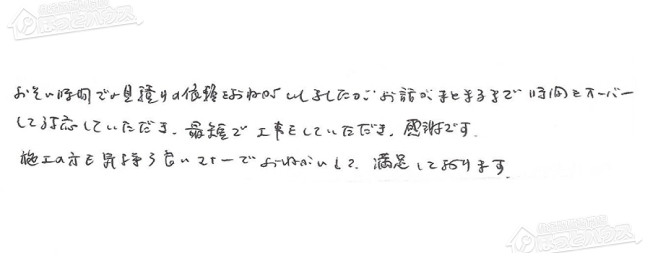 おそい時間での見積りの依頼をおねがいしましたが、お話がまとまるまで時間をオーバー
して対応していただき、最短で工事をしていただき、感謝です。
施工の方も昇降ろ良いスムーでおねがいして、満足しております。